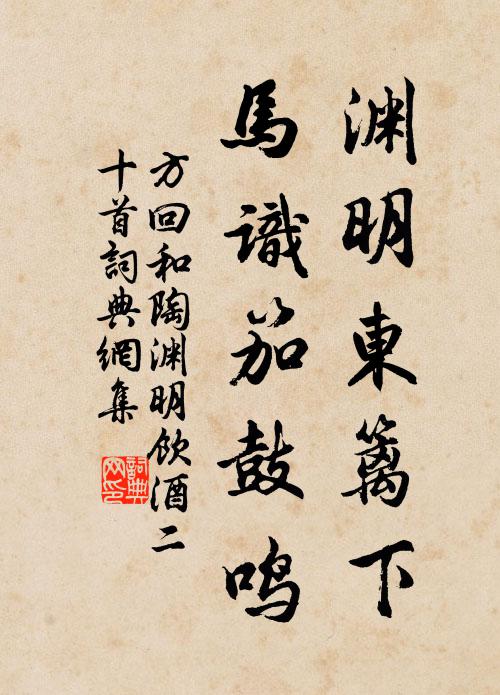 渊明東篱下
馬識笳鼓鳴
方回和陶渊明饮酒二
十首詞典網集
詞典
网印